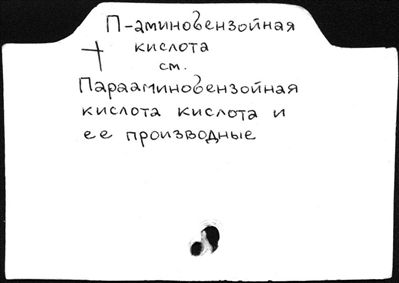 П-аминобензойная
кислота
см.
Парааминобензойная
кислота кислота и
ее производные